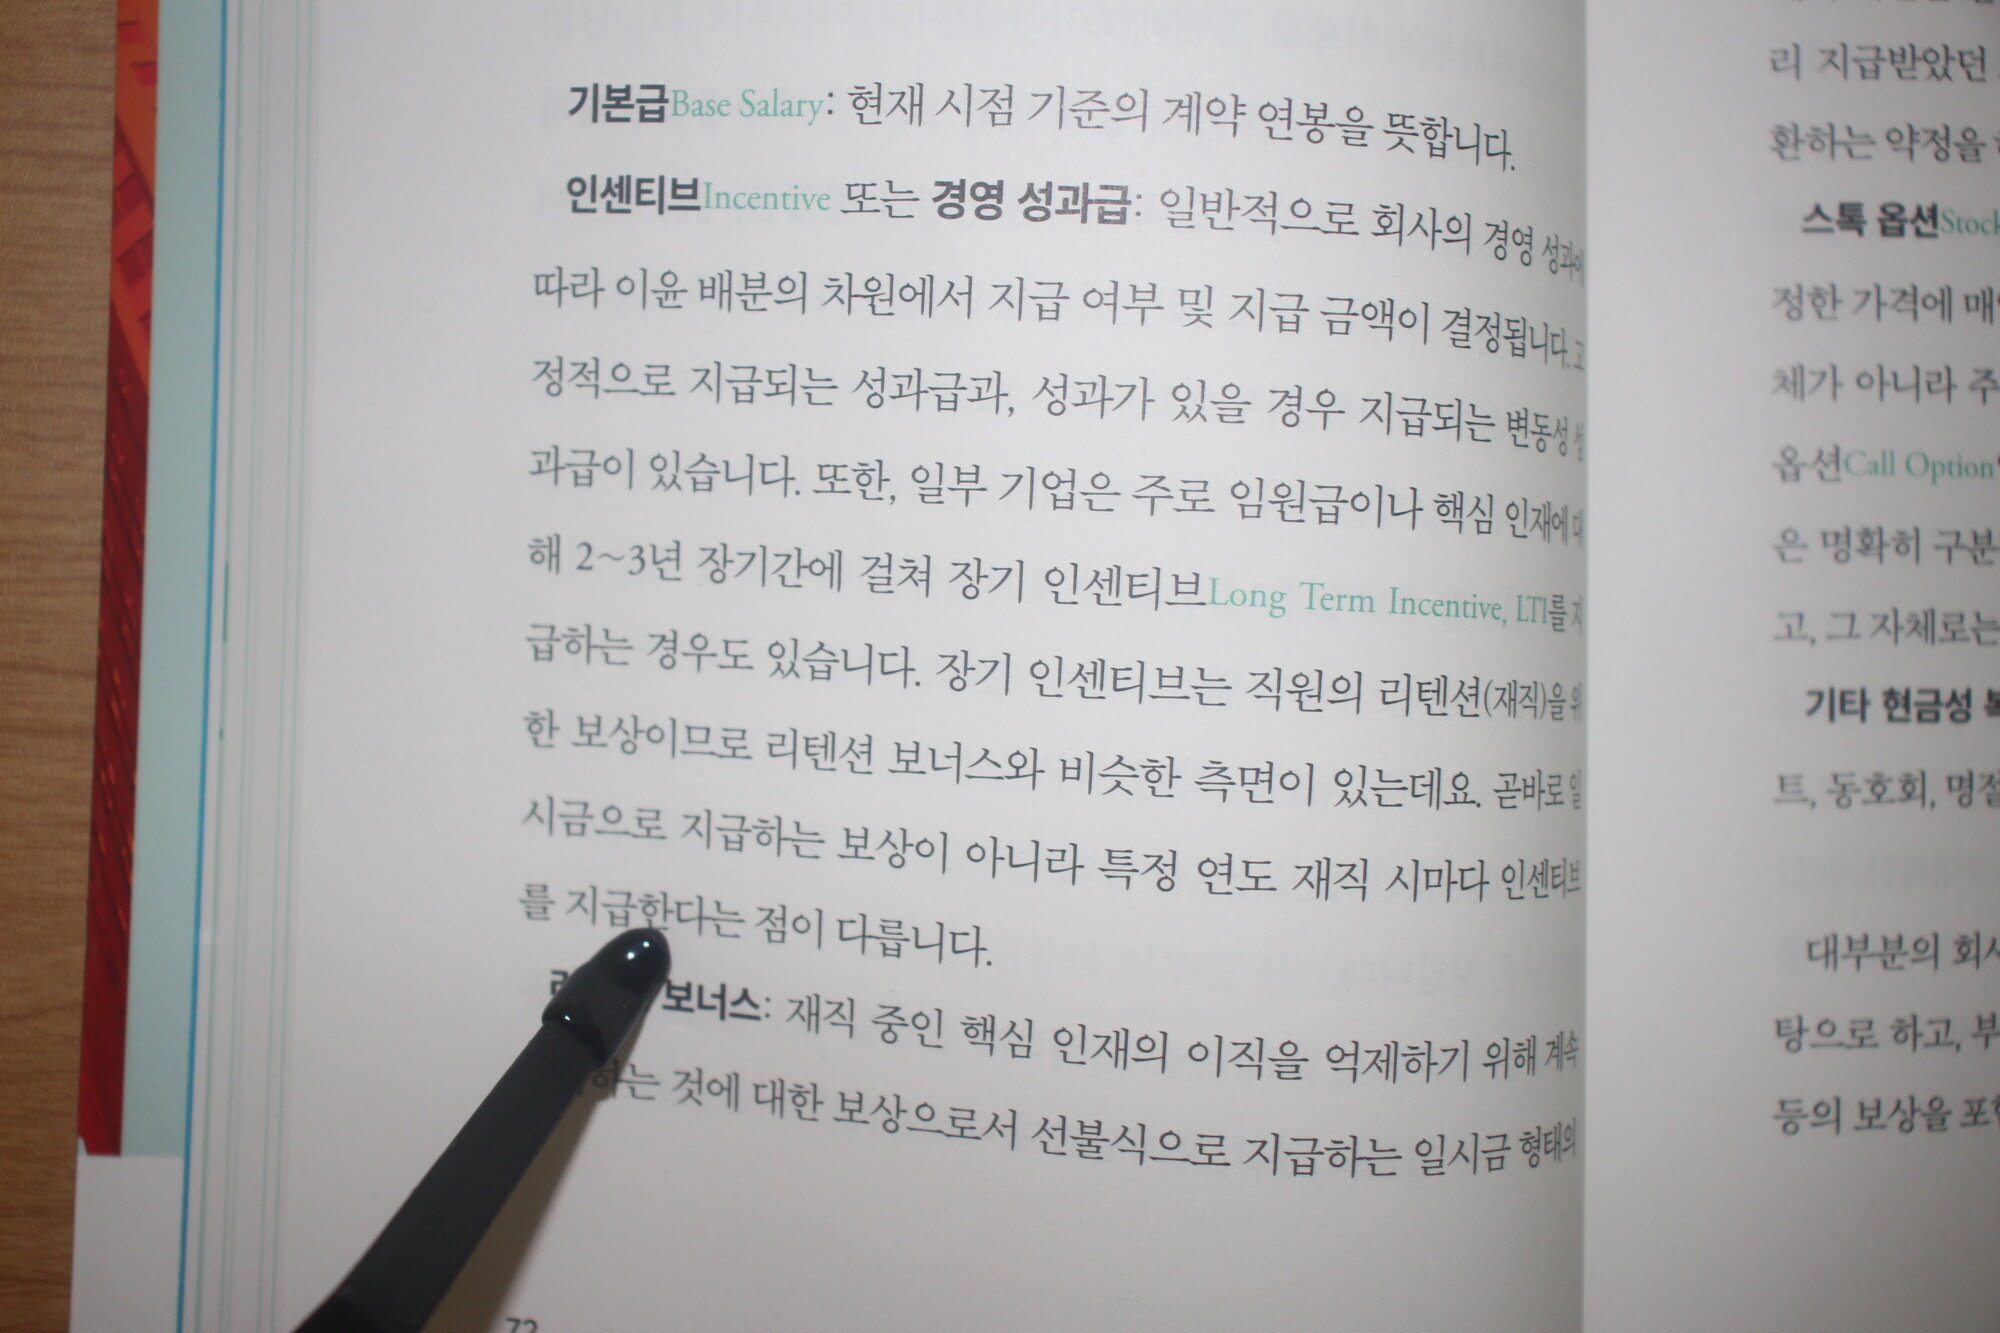 기본급Base Salary: 현재 시점 기준의 계약 연봉을 뜻합니다.
인센티브Incentive 또는 경영 성과급: 일반적으로 회사의 경영 성과에
따라 이윤 배분의 차원에서 지급 여부 및 지급 금액이 결정됩니다. 고
정적으로 지급되는 성과급과, 성과가 있을 경우 지급되는 변동성 성
과급이 있습니다. 또한, 일부 기업은 주로 임원급이나 핵심 인재에 대
해 2~3년 장기간에 걸쳐 장기 인센티브Long Term Incentive, LTI를 지
급하는 경우도 있습니다. 장기 인센티브는 직원의 리텐션(재직)을 위
한 보상이므로 리텐션 보너스와 비슷한 측면이 있는데요. 곧바로 일
시금으로 지급하는 보상이 아니라 특정 연도 재직 시마다 인센티브
를 지급한다는 점이 다릅니다.
보너스: 재직 중인 핵심 인재의 이직을 억제하기 위해 계속
하는 것에 대한 보상으로서 선불식으로 지급하는 일시금 형태의
72
리 지급받았던
환하는 약정을
스톡 옵션Stock
정한 가격에
체가 아니라 주
옵션Call Option
은 명확히 구분
고, 그 자체로는
기타 현금성
트, 동호회, 명절
대부분의 회사
탕으로 하고, 부
등의 보상을 포함